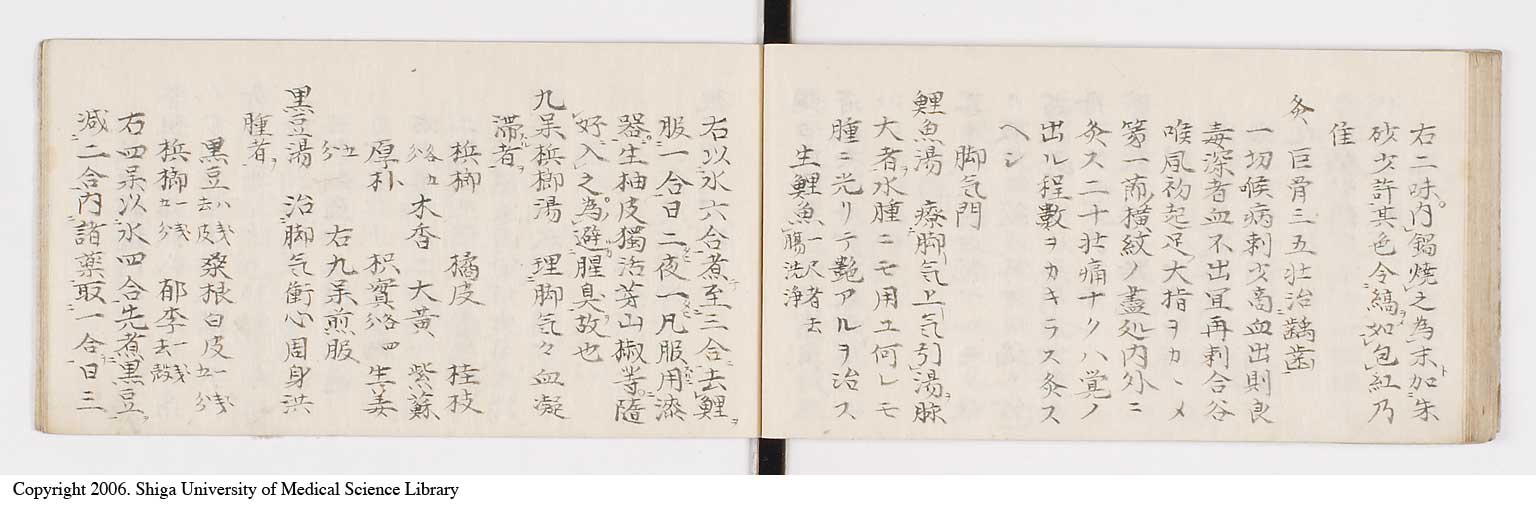 右二味内鍋焼之為末加朱
砂少許其色令縞如包紅乃
佳
灸 巨骨三五壮治齲歯
一切喉病刺少商血出則良
毒深者血不出宜再刺合谷
喉風初起足大指ヲカヽメ
第一節横紋ノ盡処内外ニ
灸ス二十壮痛ナクハ覚ノ
出ル程数ヲカキラス灸ス
ヘシ
脚気門
鯉魚湯 療脚気上気引湯脉
大者水腫ニモ用ユ何レモ
腫ニ光リテ艶アルヲ治ス
生鯉魚一尺者去腸洗浄
右以水六合煮至三合去鯉
服一合日二夜一凡服用漆
器生柚皮獨活芽山椒等隨
好入之為避腥臭故也
九味梹榔湯 理脚気々血凝
滞者
梹榔 橘皮 桂枝
各五分 木香 大黄 紫蘇
厚朴 枳實各四分 生姜
五分 右九味煎服
黒豆湯 治脚气衝心周身洪
腫者
黒豆八戔去皮 桑根白皮一戔五分
梹榔一戔五分 郁李一戔去殻
右四味以水四合先煮黒豆
減二合内諸薬取一合日三